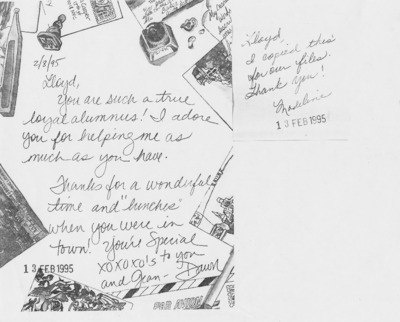 2/8/95
Lloyd,
You are such a true
loyal alumnus! I adore
you for helping me as
much as you have.
Thanks for a wonderful
time and "lunches"
when you were in
town. You're Special
XOXOXO's to you
and Jean - Dawn
13 FEB 1995
PAR AVION
Lloyd,
I copied this
for our files.
Thank you!
Madeline
13 FEB 1995